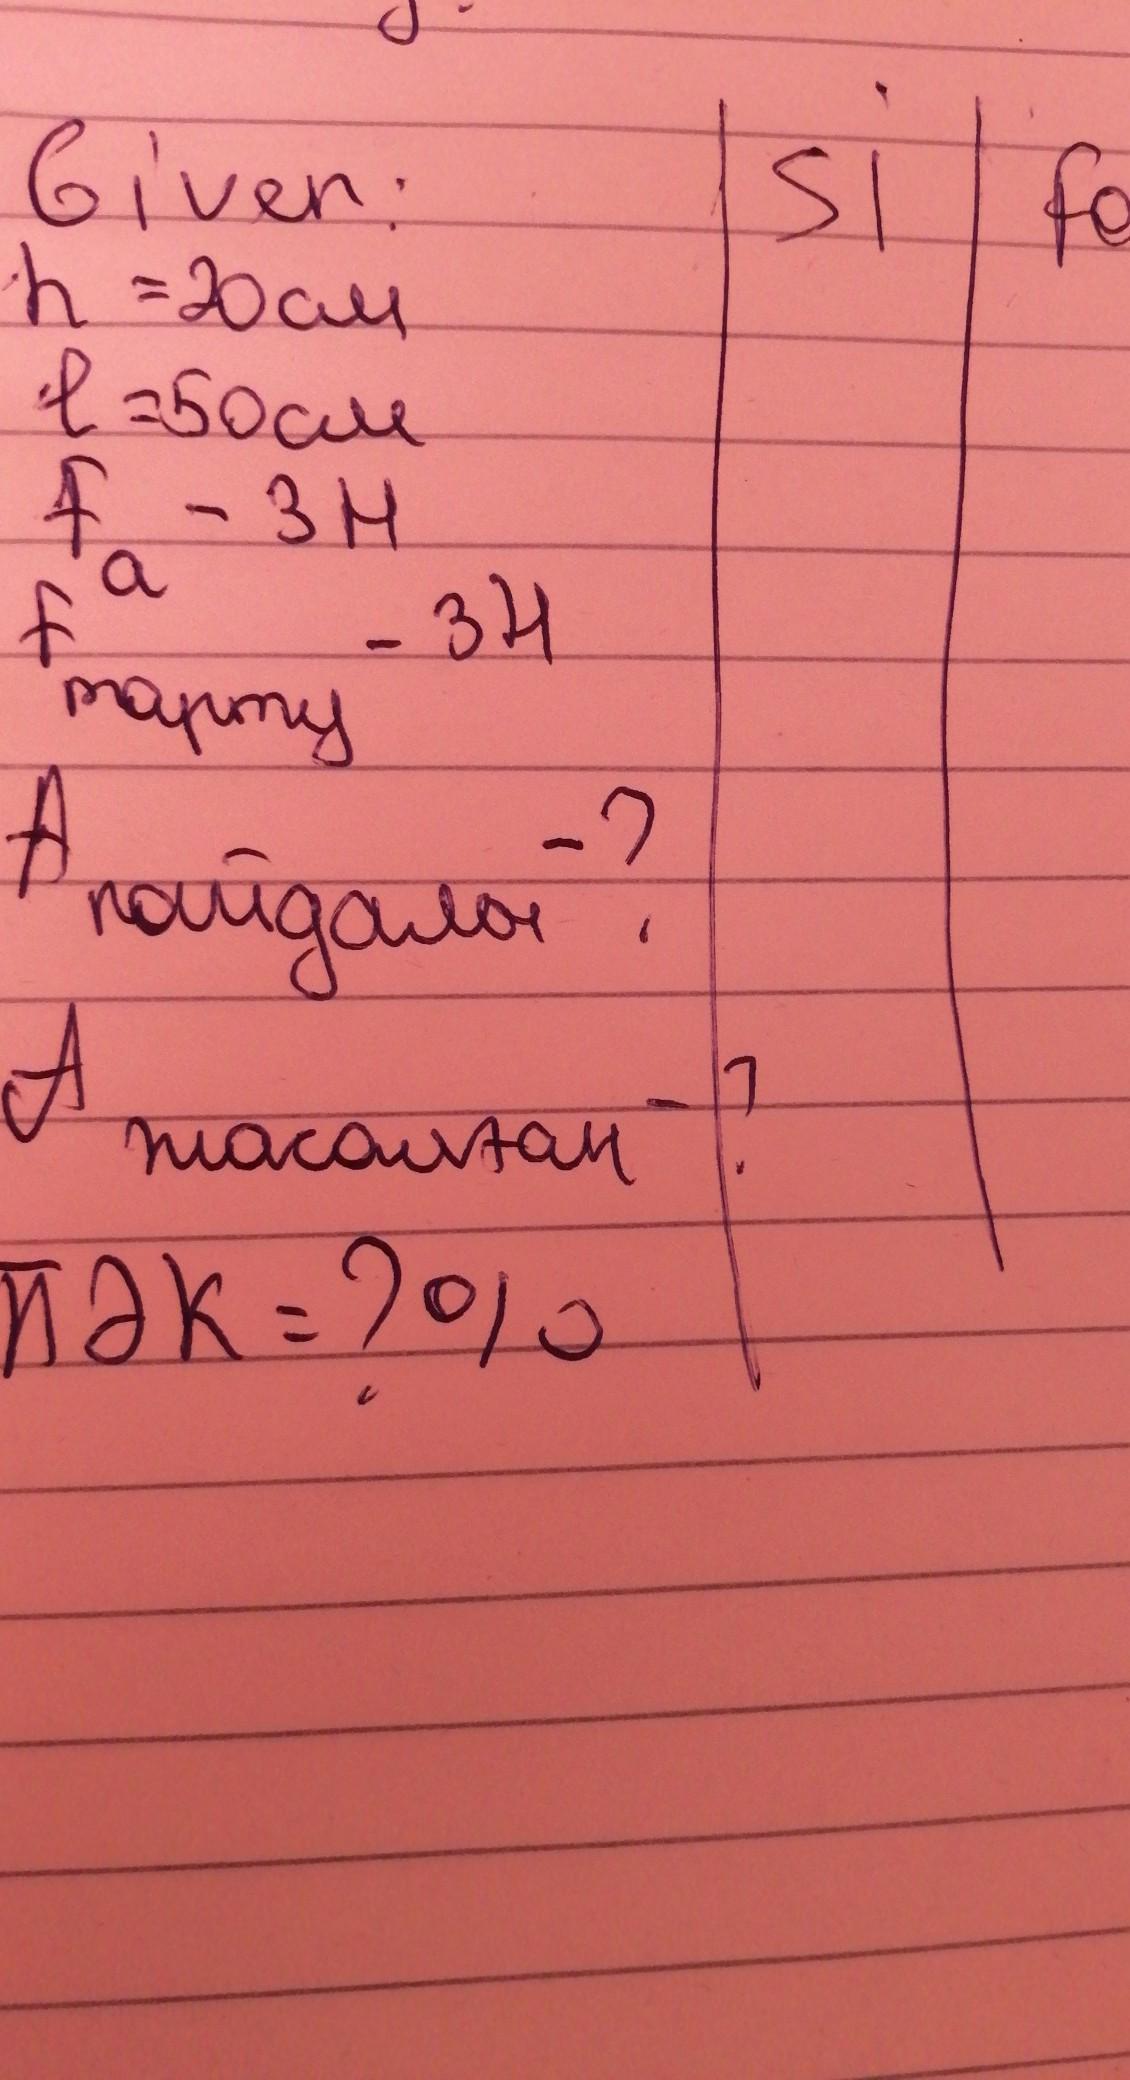 Given:
h = 20см
l = 50см
Fа - 3Н
Fтарту - 3Н
Aпайдалы - ?
Aжасалған - ?
ПӘК = ? %
SI